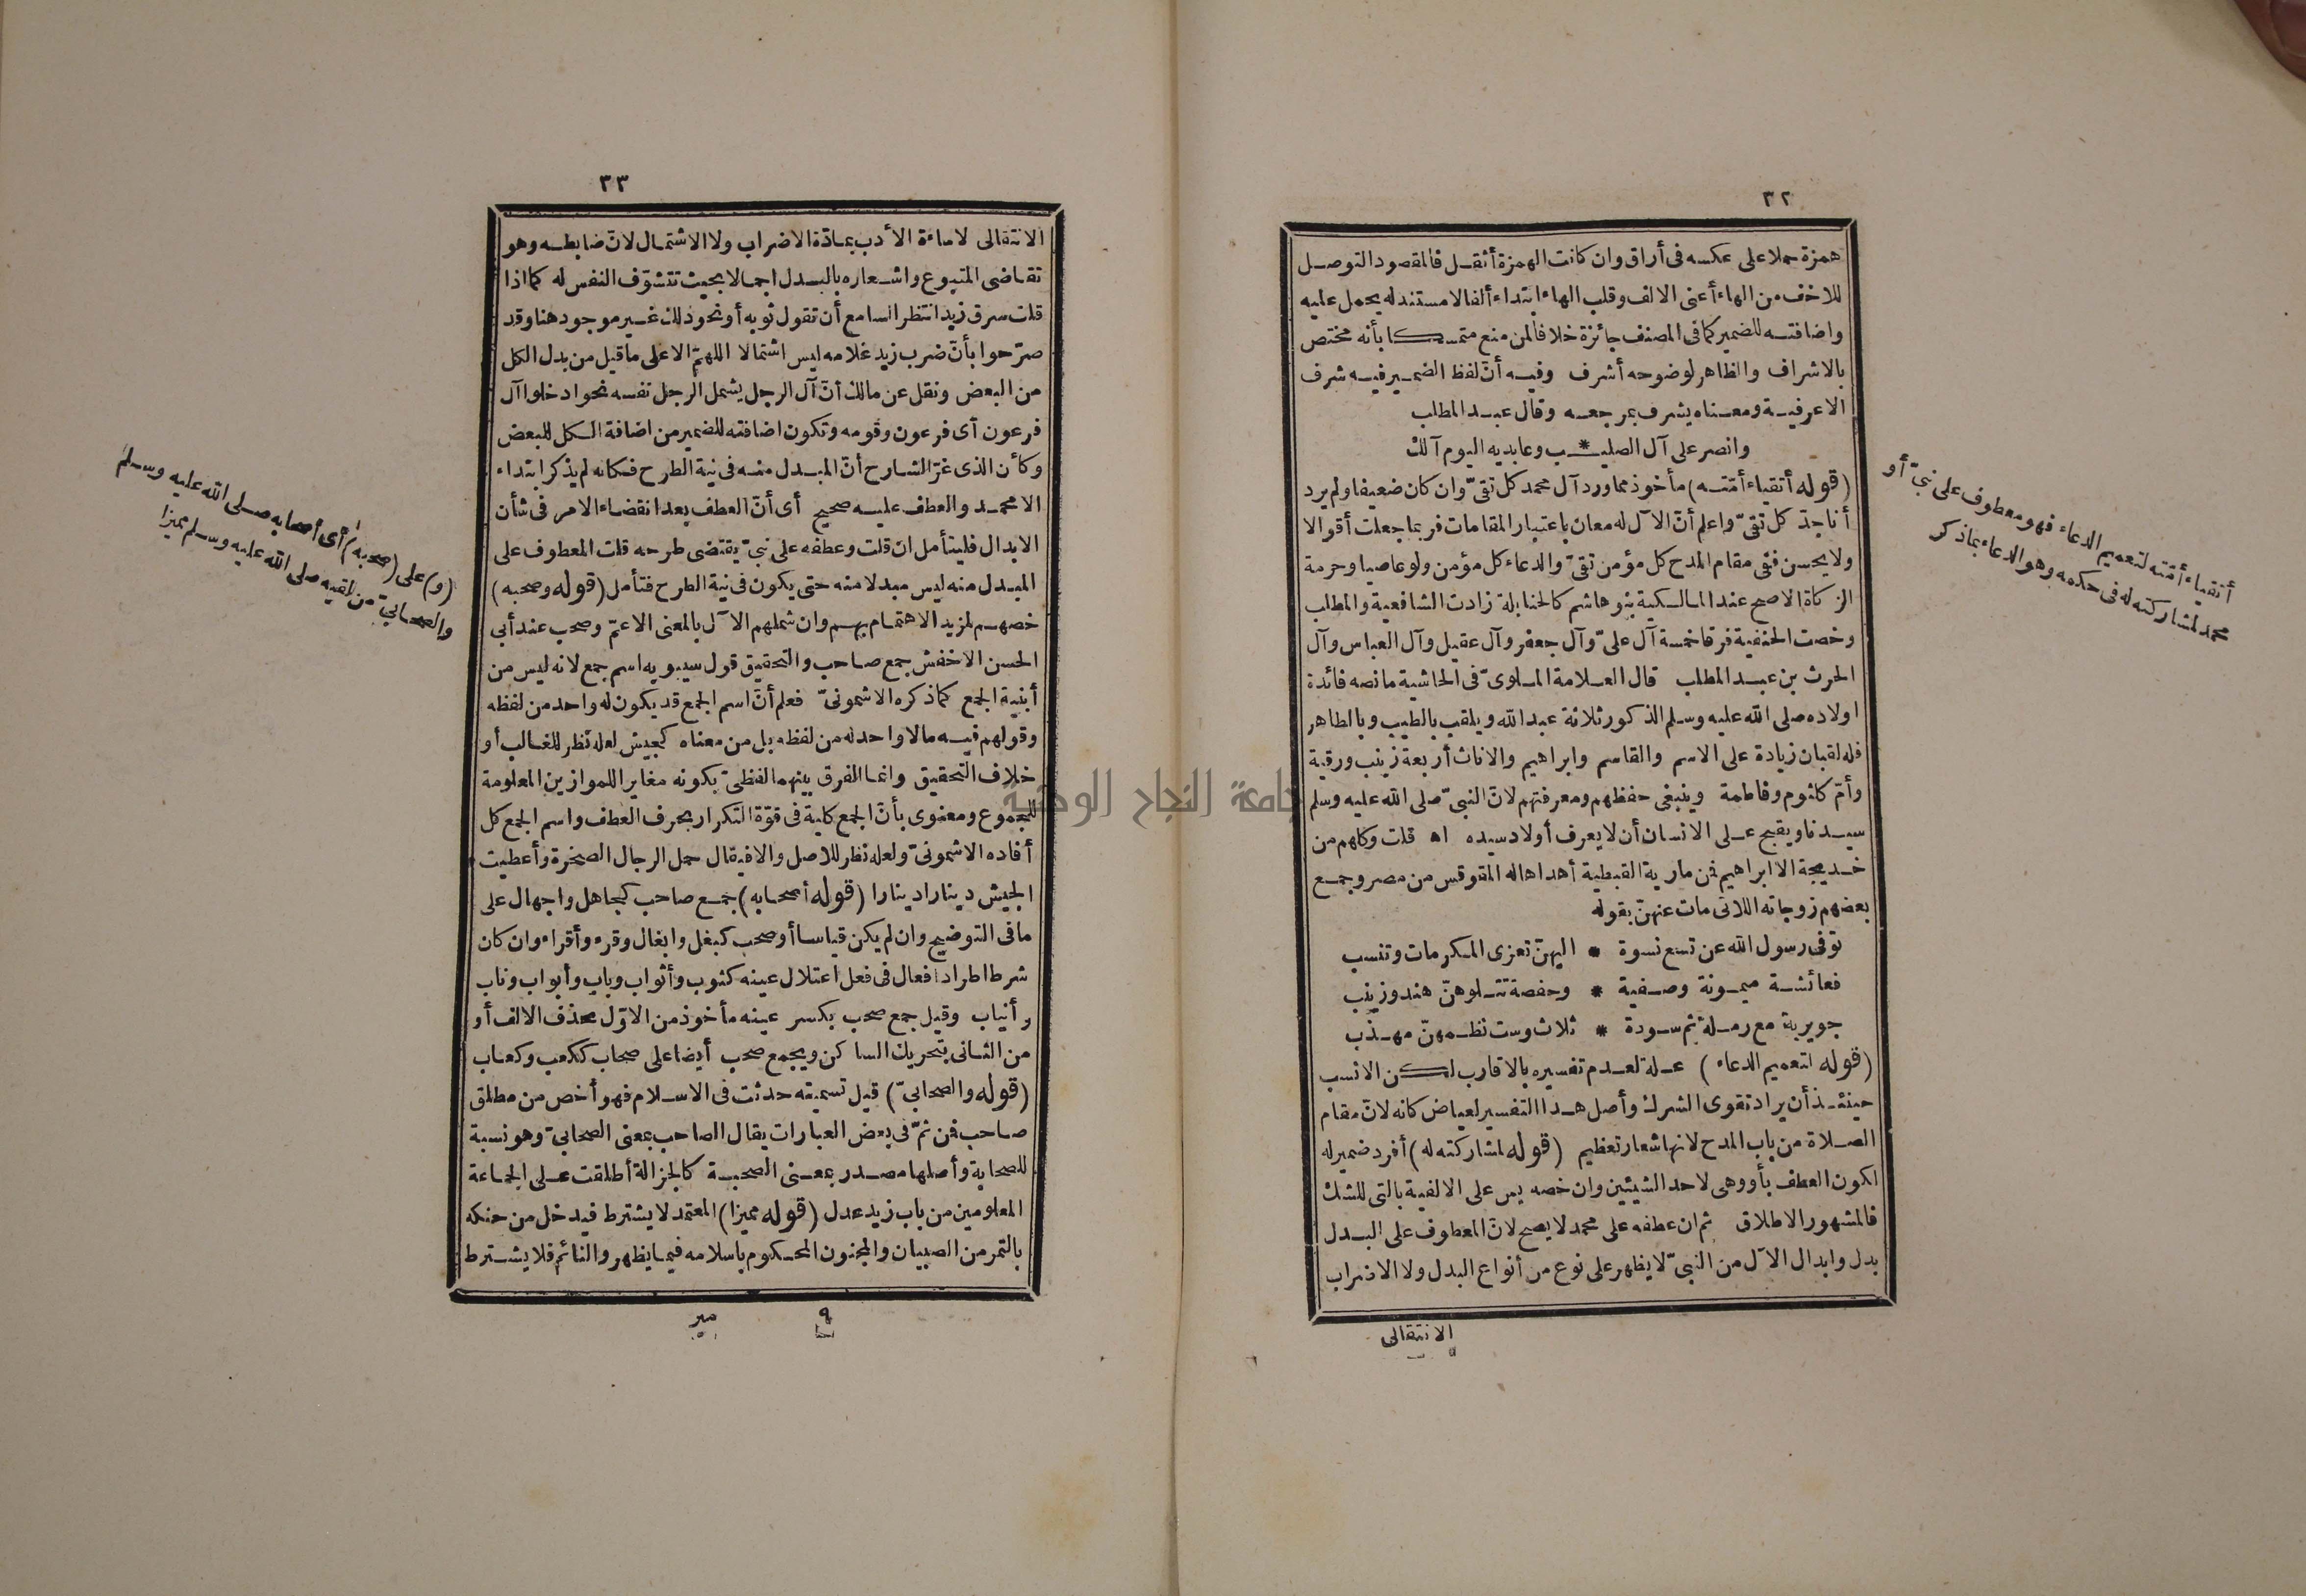 ٣٢
همزة حملا على عكسه فى أراق وان كانت الهمزة أثقل فالمقصود التوصل
للاخف من الهاء أعنى الالف وقلب الهاء ابتداء ألفا لا مستند له يحمل عليه
واضافته للضمير كما فى المصنف جائزة خلافا لمن منع متمسكا بأنه مختص
بالاشراف والظاهر لوضوحه أشرف وفيه أنّ لفظ الضمير فيه شرف
الاعرفية ومعناه يشرف بمرجعه وقال عبد المطلب
وانصر على آل الصليـ * ـب وعابديه اليوم آلك
(قوله أتقياء أمّته) مأخوذ مما ورد آل محمد كل تقىّ وان كان ضعيفا ولم يرد
أنا جدّ كل تقىّ واعلم أنّ الآل له معان باعتبار المقامات فربما جعلت أقوالا
ولا يحسن ففى مقام المدح كل مؤمن تقىّ والدعاء كل مؤمن ولو عاصيا وحرمة
الزكاة الاصح عند المالكية بنو هاشم كالحنابلة زادت الشافعية والمطلب
وخصت الحنفية فرقا خمسة آل علىّ وآل جعفر وآل عقيل وآل العباس وآل
الحرث بن عبد المطلب قال العلامة الملوىّ فى الحاشية ما نصه فائدة
اولاده صلى الله عليه وسلم الذكور ثلاثة عبد الله ويلقب بالطيب وبالطاهر
فله لقبان زيادة على الاسم والقاسم وابراهيم والاناث أربعة زينب ورقية
وأمّ كلثوم وفاطمة وينبغى حفظهم ومعرفتهم لانّ النبىّ صلى الله عليه وسلم
سيدنا ويقبح على الانسان أن لا يعرف أولاد سيده اه قلت وكلهم من
خديجة الا ابراهيم فمن مارية القبطية أهداها له المقوقس من مصر وجمع
بعضهم زوجاته اللاتى مات عنهنّ بقوله
توفى رسول الله عن تسع نسوة * اليهنّ تعزى المكرمات وتنسب
فعائشة ميمونة وصفية * وحفصة تتلوهنّ هند وزينب
جويرية مع رملة ثم سودة * ثلاث وست نظمهنّ مهذب
(قوله لتعميم الدعاء) علة لعدم تفسيره بالاقارب لكن الانسب
حينئذ أن يراد تقوى الشرك وأصل هذا التفسير لعياض كانه لانّ مقام
الصلاة من باب المدح لانها شعار تعظيم (قوله لمشاركته له) أفرد ضمير له
لكون العطف بأو وهى لاحد الشيئين وان خصه يس على الالفية بالتى للشك
فالمشهور الاطلاق ثم ان عطفه على محمد لا يصح لانّ المعطوف على البدل
بدل وابدال الآل من النبىّ لا يظهر على نوع من أنواع البدل ولا الاضراب
الانتقالى
أتقياء أمّته لتعميم الدعاء فهو معطوف على نبىّ أو
محمد لمشاركته له فى حكمه وهو الدعاء بما ذكر
٣٣
الانتقالى لاساءة الأدب بمادّة الاضراب ولا الاشتمال لانّ ضابطه وهو
تقاضى المتبوع واشعاره بالبدل اجمالا بحيث تتشوّف النفس له كما اذا
قلت سرق زيد انتظر السامع أن تقول ثوبه أو نحو ذلك غير موجود هنا وقد
صرّحوا بأنّ ضرب زيد غلامه ليس اشتمالا اللهمّ الا على ما قيل من بدل الكل
من البعض ونقل عن مالك أنّ آل الرجل يشمل الرجل نفسه نحو ادخلوا آل
فرعون أى فرعون وقومه وتكون اضافته للضمير من اضافة الكل للبعض
وكأن الذى غرّ الشارح أنّ المبدل منه فى نية الطرح فكانه لم يذكر ابتداء
الا محمد والعطف عليه صحيح أى أنّ العطف بعد انقضاء الامر فى شأن
الابدال فليتأمل ان قلت وعطفه على نبىّ يقتضى طرحه قلت المعطوف على
المبدل منه ليس مبدلا منه حتى يكون فى نية الطرح فتأمل (قوله وصحبه)
خصهم لمزيد الاهتمام بهم وان شملهم الآل بالمعنى الاعمّ وصحب عند أبى
الحسن الاخفش جمع صاحب والتحقيق قول سيبويه اسم جمع لانه ليس من
أبنية الجمع كما ذكره الاشمونىّ فعلم أنّ اسم الجمع قد يكون له واحد من لفظه
وقولهم فيه ما لا واحد له من لفظه بل من معناه كجيش لعله نظر للغالب أو
خلاف التحقيق وانما الفرق بينهما لفظىّ بكونه مغاير اللموازين المعلومة
للجموع ومعنوى بأنّ الجمع كلية فى قوّة التكرار بحرف العطف واسم الجمع كل
أفاده الاشمونىّ ولعله نظر للاصل والا فيقال حمل الرجال الصخرة وأعطيت
الجيش دينارا دينارا (قوله أصحابه) جمع صاحب كجاهل واجهال على
ما فى التوضيح وان لم يكن قياسا أو صحب كبغل وابغال وقرء وأقراء وان كان
شرط اطراد افعال فى فعل اعتلال عينه كثوب وأثواب وباب وأبواب وناب
وأنياب وقيل جمع صحب بكسر عينه مأخوذ من الاوّل بحذف الالف أو
من الثانى بتحريك الساكن ويجمع صحب أيضا على صحاب ككعب وكعاب
(قوله والصحابىّ) قيل تسميته حدثت فى الاسلام فهو أخص من مطلق
صاحب فمن ثمّ فى بعض العبارات يقال الصاحب بمعنى الصحابىّ وهو نسبة
للصحابة وأصلها مصدر بمعنى الصحبة كالجزالة أطلقت على الجماعة
المعلومين من باب زيد عدل (قوله مميزا) المعتمد لا يشترط فيدخل من حنكه
بالتمر من الصبيان والمجنون المحكوم باسلامه فيما يظهر والنائم فلا يشترط
٩
مير
(و) على (صحبه) أى أصحابه صلى الله عليه وسلم
والصحابىّ من لقيه صلى الله عليه وسلم مميزا
جامعة النجاح الوطنية